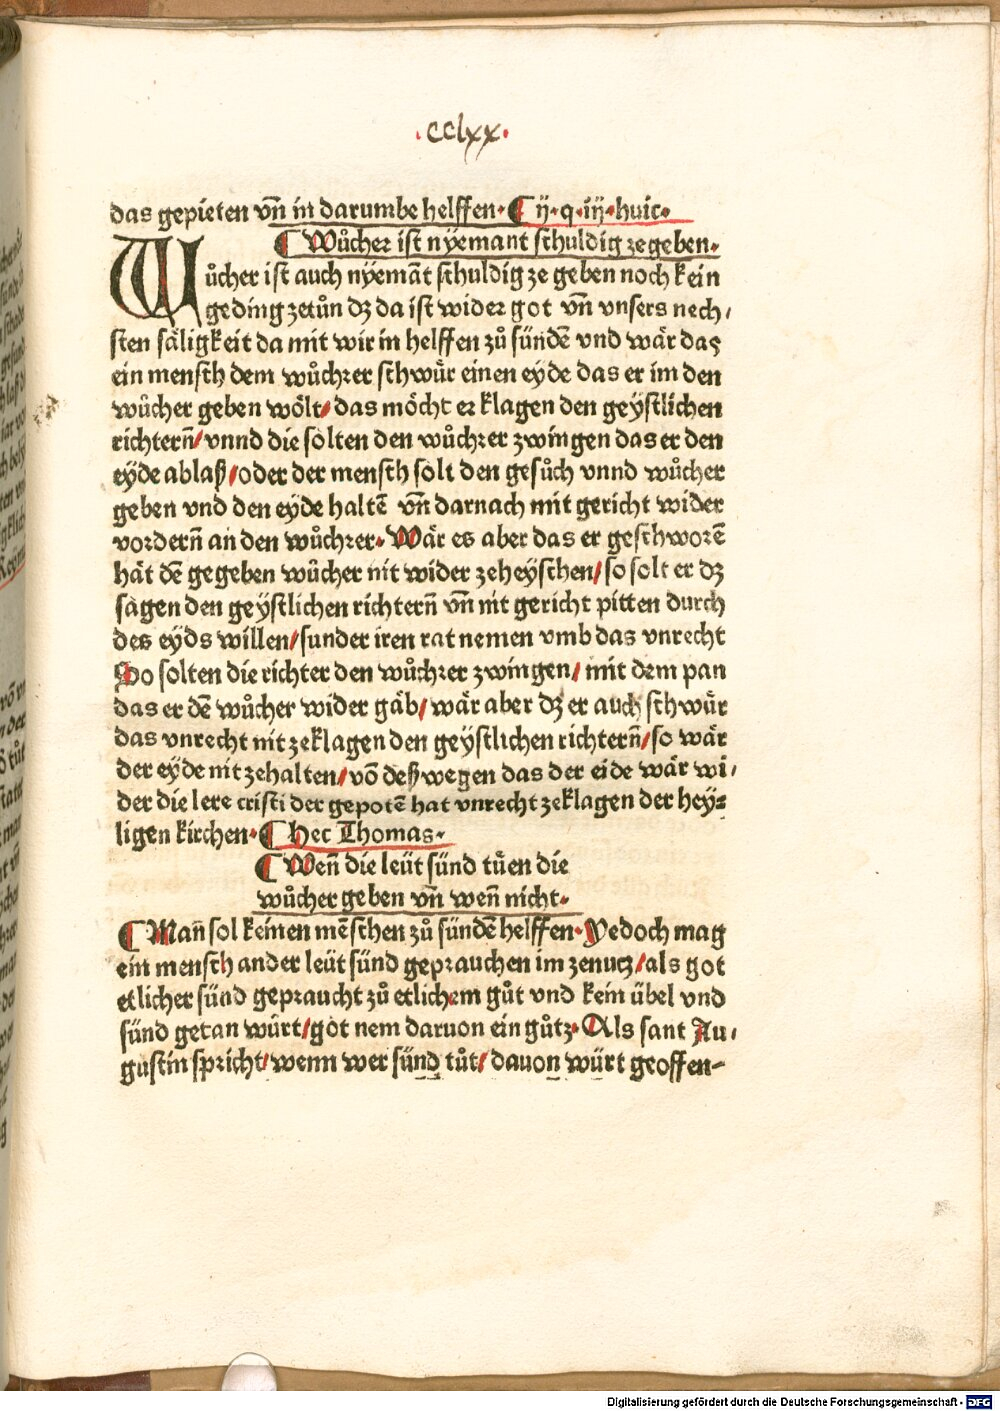 .cclxx.
das gepieten vn̄ in darumbe helffen. ¶ ij.q.iij.huic.
¶ Wůcher ist nyemant schuldig ze geben.
Wůcher ist auch nyemāt schuldig ze geben noch kein
geding zetůn dz da ist wider got vn̄ vnsers nech/
sten säligkeit da mit wir in helffen zů sündē vnd wär das
ein mensch dem wůchrer schwůr einen eyde das er im den
wůcher geben wölt/ das möcht er klagen den geystlichen
richtern̄/ vnnd die solten den wůchrer zwingen das er den
eyde ablaß/ oder der mensch solt den gesůch vnnd wůcher
geben vnd den eyde haltē vn̄ darnach mit gericht wider
vordern̄ an den wůchrer. Wär es aber das er geschworē
hät dē gegeben wůcher nit wider zeheyschen/ so solt er dz
sagen den geystlichen richtern̄ vn̄ nit gericht pitten durch
des eyds willen/ sunder iren rat nemen vmb das vnrecht
So solten die richter den wůchrer zwingen/ mit dem pan
das er dē wůcher wider gäb/ wär aber dz er auch schwůr
das vnrecht nit zeklagen den geystlichen richtern̄/ so wär
der eyde nit zehalten/ vō deßwegen das der eide wär wi/
der die lere cristi der gepotē hat vnrecht zeklagen der hey=
ligen kirchen. ¶ Hec Thomas.
¶ Wen̄ die leüt sünd tůen die
wůcher geben vn̄ wen̄ nicht.
¶ Man̄ sol keinen mēschen zů sündē helffen. Yedoch mag
ein mensch ander leüt sünd geprauchen im zenutz/ als got
etlicher sünd gepraucht zů etlichem gůt vnd kein übel vnd
sünd getan würt/ got nem daruon ein gůtz. Als sant Au/
gustin spricht/ wenn wer sünd tůt/ dauon würt geoffen-
Digitalisierung gefördert durch die Deutsche Forschungsgemeinschaft - DFG